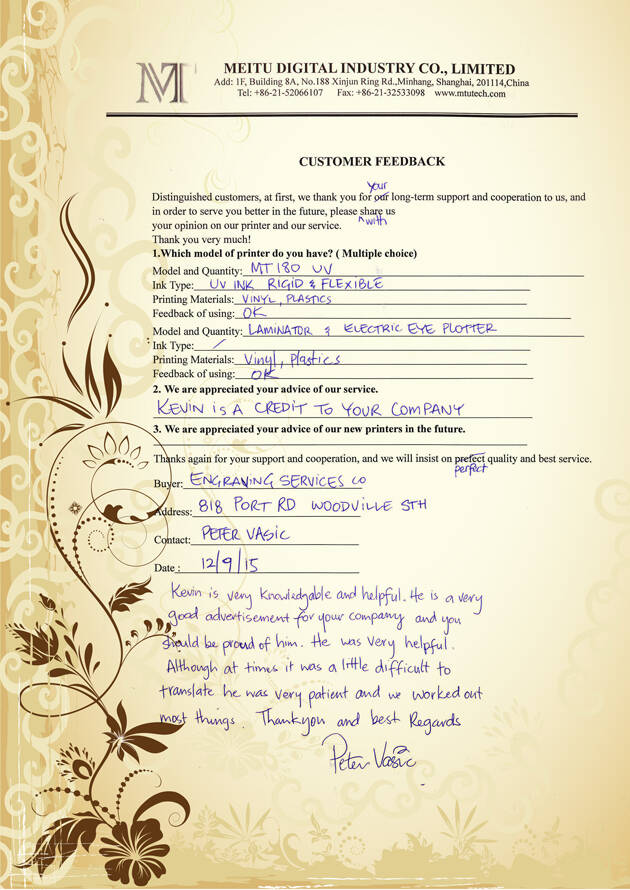 MT
MEITU DIGITAL INDUSTRY CO., LIMITED
Add: 1F, Building 8A, No.188 Xinjun Ring Rd.,Minhang, Shanghai, 201114,China
Tel: +86-21-52066107 Fax: +86-21-32533098 www.mtutech.com
CUSTOMER FEEDBACK
your
Distinguished customers, at first, we thank you for our long-term support and cooperation to us, and
in order to serve you better in the future, please share us
with
your opinion on our printer and our service.
Thank you very much!
1.Which model of printer do you have? ( Multiple choice)
Model and Quantity: MT 180 UV
Ink Type: UV INK RIGID & FLEXIBLE
Printing Materials: VINYL, PLASTICS
Feedback of using: OK
Model and Quantity: LAMINATOR & ELECTRIC EYE PLOTTER
Ink Type: /
Printing Materials: Vinyl, plastics
Feedback of using: OK
2. We are appreciated your advice of our service.
KEVIN IS A CREDIT TO YOUR COMPANY
3. We are appreciated your advice of our new printers in the future.
Thanks again for your support and cooperation, and we will insist on prefect quality and best service.
perfect
Buyer: ENGRAVING SERVICES CO
Address: 818 PORT RD WOODVILLE STH
Contact: PETER VASIC
Date : 12/9/15
Kevin is very knowledgable and helpful. He is a very
good advertisement for your company and you
should be proud of him. He was very helpful.
Although at times it was a little difficult to
translate he was very patient and we worked out
most things. Thankyou and best Regards
Peter Vasic